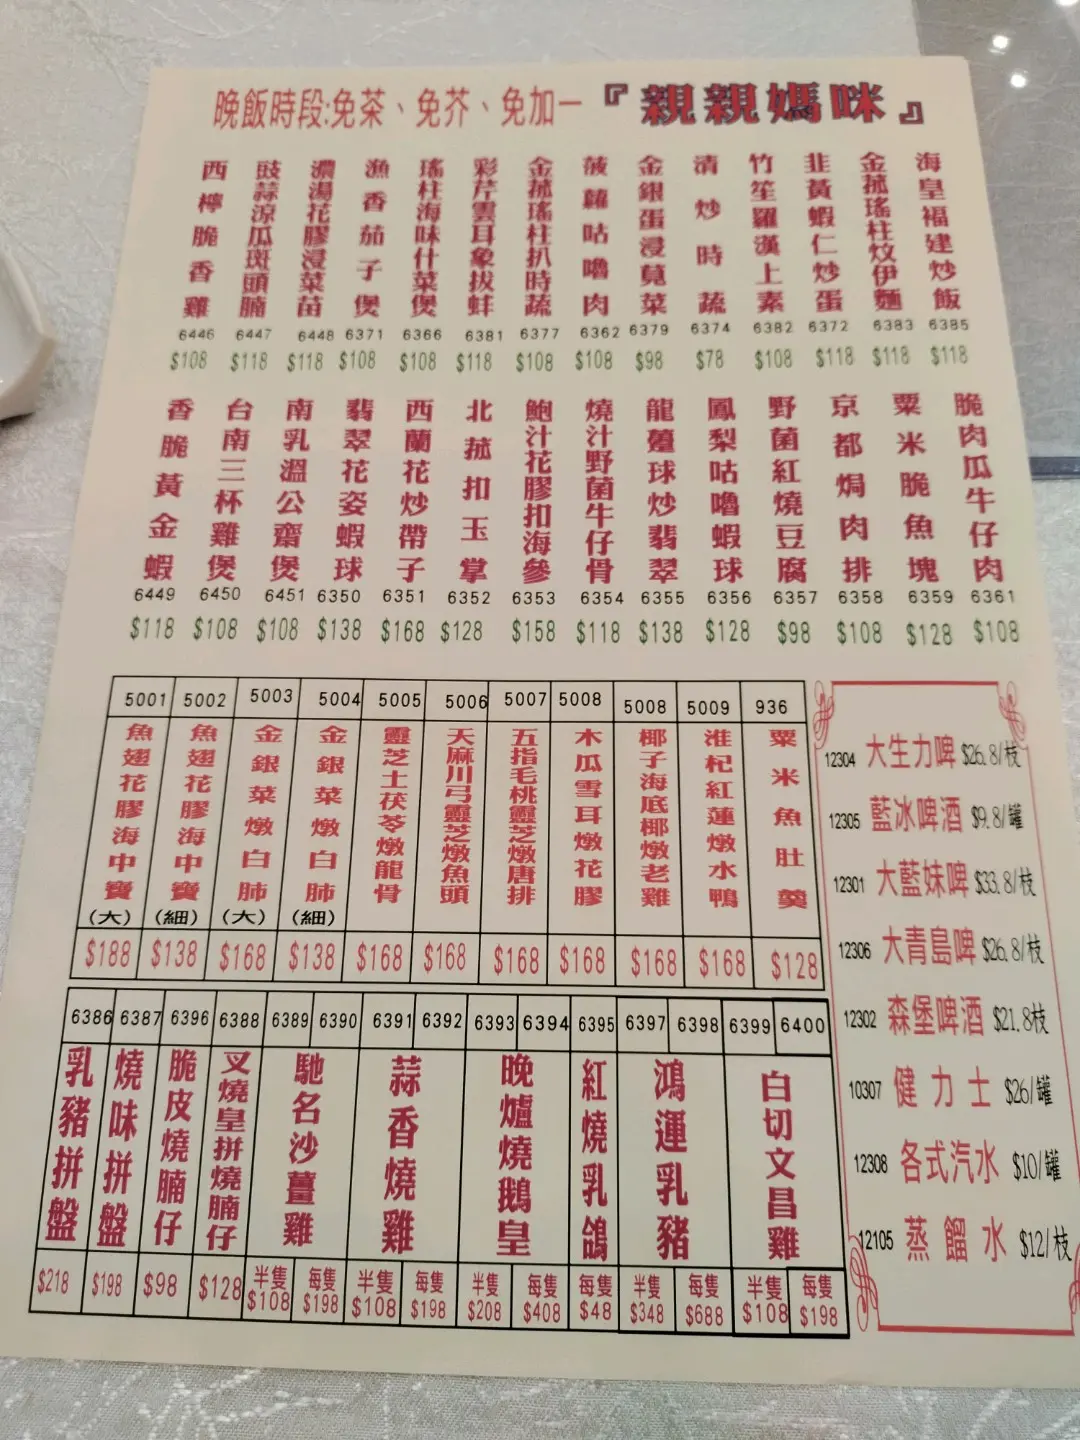 晚飯時段:免茶、免芥、免加一『親親媽咪』
海皇福建炒飯 6385 $118
金菰瑤柱炆伊麵 6383 $118
韭黃蝦仁炒蛋 6372 $118
竹笙羅漢上素 6382 $108
清炒時蔬 6374 $78
金銀蛋浸莧菜 6379 $98
菠蘿咕嚕肉 6362 $108
金菰瑤柱扒時蔬 6377 $108
彩芹雲耳象拔蚌 6381 $118
瑤柱海味什菜煲 6366 $108
漁香茄子煲 6371 $108
濃湯花膠浸菜苗 6448 $118
豉蒜涼瓜斑頭腩 6447 $118
西檸脆香雞 6446 $108
脆肉瓜牛仔肉 6361 $108
粟米脆魚塊 6359 $128
京都焗肉排 6358 $108
野菌紅燒豆腐 6357 $98
鳳梨咕嚕蝦球 6356 $128
龍躉球炒翡翠 6355 $138
燒汁野菌牛仔骨 6354 $118
鮑汁花膠扣海參 6353 $158
北菰扣玉掌 6352 $128
西蘭花炒帶子 6351 $168
翡翠花姿蝦球 6350 $138
南乳溫公齋煲 6451 $108
台南三杯雞煲 6450 $108
香脆黃金蝦 6449 $118
5001 魚翅花膠海中寶(大) $188
5002 魚翅花膠海中寶(細) $138
5003 金銀菜燉白肺(大) $168
5004 金銀菜燉白肺(細) $138
5005 靈芝土茯苓燉龍骨 $168
5006 天麻川弓靈芝燉魚頭 $168
5007 五指毛桃靈芝燉唐排 $168
5008 木瓜雪耳燉花膠 $168
5008 椰子海底椰燉老雞 $168
5009 淮杞紅蓮燉水鴨 $168
936 粟米魚肚羹 $128
6386 乳豬拼盤 $218
6387 燒味拼盤 $198
6396 脆皮燒腩仔 $98
6388 叉燒皇拼燒腩仔 $128
6389 6390 馳名沙薑雞 半隻 $108 每隻 $198
6391 6392 蒜香燒雞 半隻 $108 每隻 $198
6393 6394 晚爐燒鵝皇 半隻 $208 每隻 $408
6395 紅燒乳鴿 每隻 $48
6397 6398 鴻運乳豬 半隻 $348 每隻 $688
6399 6400 白切文昌雞 半隻 $108 每隻 $198
12304 大生力啤 $26.8/枝
12305 藍冰啤酒 $9.8/罐
12301 大藍妹啤 $33.8/枝
12306 大青島啤 $26.8/枝
12302 森堡啤酒 $21.8枝
10307 健力士 $26/罐
12308 各式汽水 $10/罐
12105 蒸餾水 $12/枝